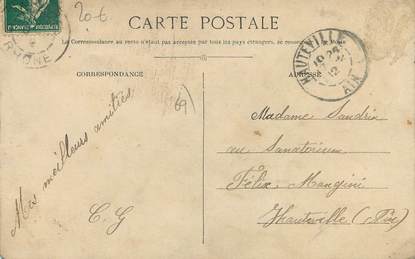 20-6
CARTE POSTALE
La Correspondance au recto n'est pas acceptée par tous les pays étrangers, se
RHONE
HAUTEVILLE
AIN
12
CORRESPONDANCE
ADRESSE
69
Mes meilleurs amitiés
C. G
Madame Sandrin
au Sanatorium
Félix Mangini
Hauteville (Ain)